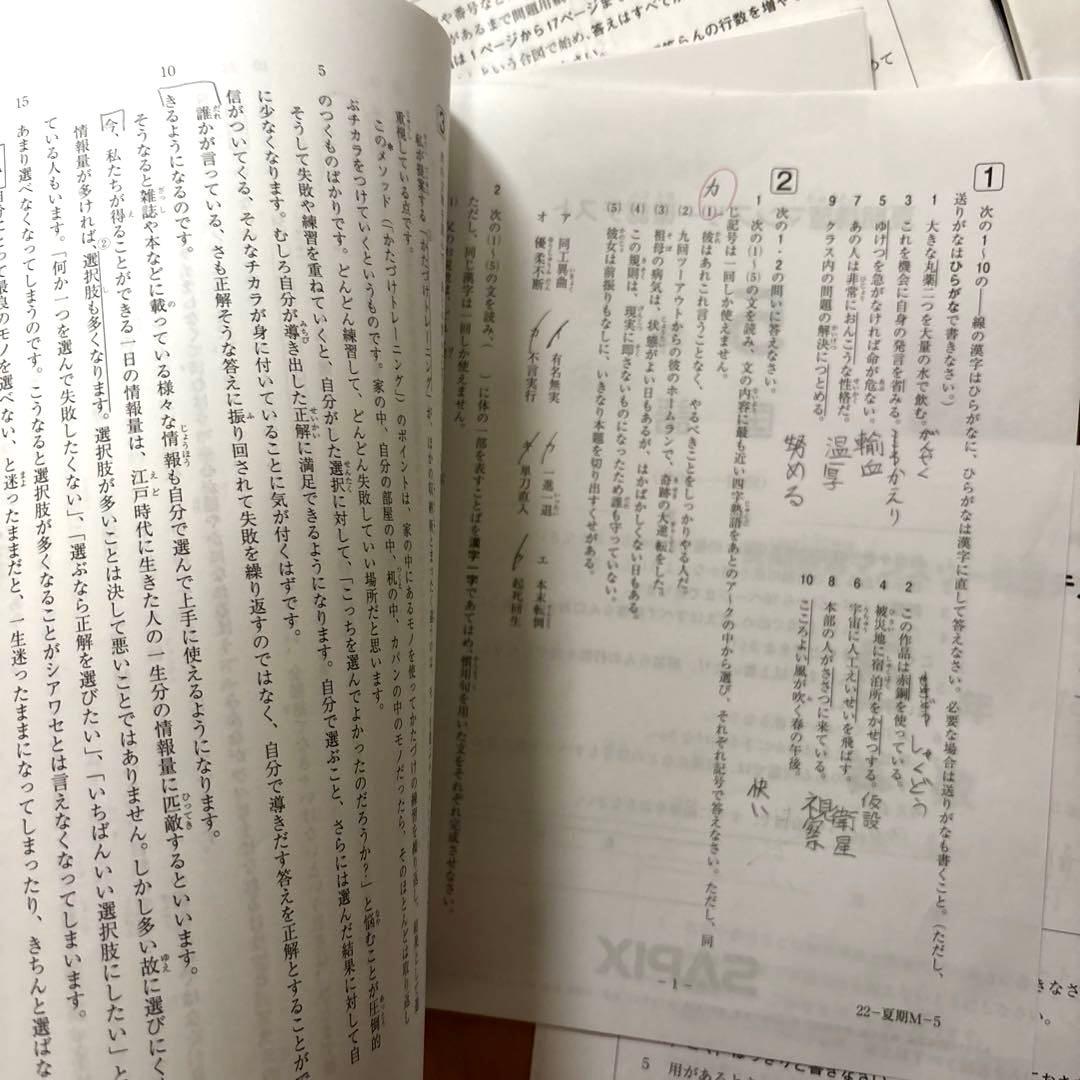 1 次の1〜10の――線の漢字はひらがなに、ひらがなは漢字に直して答えなさい。必要な場合は送りがなも書くこと。(ただし、
送りがなはひらがなで書きなさい。)
1 大きな丸薬二つを大量の水で飲む。がんやく
2 この作品は赤銅を使っている。しゃくどう
3 これを機会に自身の発言を省みる。
4 被災地に宿泊所をかせつする。仮設
5 ゆけつを急がなければ命が危ない。輸血
6 宇宙に人工えいせいを飛ばす。衛星
7 あの人は非常におんこうな性格だ。温厚
8 本部の人がしさつに来ている。視察
9 クラス内の問題の解決につとめる。努める
10 こころよい風が吹く春の午後。快い
2 次の1・2の問いに答えなさい。
1 次の(1)〜(5)の文を読み、文の内容に最も近い四字熟語をあとのア〜クの中から選び、それぞれ記号で答えなさい。ただし、同
じ記号は一回しか使えません。
カ (1) 彼はあれこれ言うことなく、やるべきことをしっかりやる人だ。
(2) 九回ツーアウトからの彼のホームランで、奇跡の大逆転をした。
(3) 祖母の病気は、状態がよい日もあるが、はかばかしくない日もある。
(4) この規則は、現実に即さないものになったため誰も守っていない。
(5) 彼女は前振りもなしに、いきなり本題を切り出すくせがある。
ア 同工異曲 イ 有名無実 ウ 一進一退 エ 本末転倒
オ 優柔不断 カ 不言実行 キ 単刀直入 ク 起死回生
2 次の(1)〜(5)の文を読み、( )に体の一部を表すことばを漢字一字であてはめ、慣用句を用いた文をそれぞれ完成させなさい。
ただし、同じ漢字は一回しか使えません。
SAPIX
-1-
22-夏期M-5
3
私が提案する「かたづけトレーニング」が、
重視している点です。
このメソッド(「かたづけトレーニング」)のポイントは、家の中にあるモノを使ってかたづけの練習を繰り返し、結果として選
ぶチカラをつけていくというものです。家の中、自分の部屋の中、机の中、カバンの中のモノだったら、そのほとんどは取り返し
のつくものばかりです。どんどん練習して、どんどん失敗していい場所だと思います。
5 そうして失敗や練習を重ねていくと、自分がした選択に対して、「こっちを選んでよかったのだろうか?」と悩むことが圧倒的
に少なくなります。むしろ自分が導き出した正解に満足できるようになります。自分で選ぶこと、さらには選んだ結果に対して自
信がついてくる、そんなチカラが身に付いていることに気が付くはずです。
誰かが言っている、さも正解そうな答えに振り回されて失敗を繰り返すのではなく、自分で導きだす答えを正解とすることがで
きるようになるのです。
10 そうなると雑誌や本などに載っている様々な情報も自分で選んで上手に使えるようになります。
今、私たちが得ることができる一日の情報量は、江戸時代に生きた人の一生分の情報量に匹敵するといいます。
情報量が多ければ、②選択肢も多くなります。選択肢が多いことは決して悪いことではありません。しかし多い故に選びにく
ている人もいます。「何か一つを選んで失敗したくない」、「選ぶなら正解を選びたい」、「いちばんいい選択肢にしたい」と
あまり選べなくなってしまうのです。こうなると選択肢が多くなることがシアワセとは言えなくなってしまいます。
15
と迷ったままだと、一生迷ったままになってしまったり、きちんと選ばな